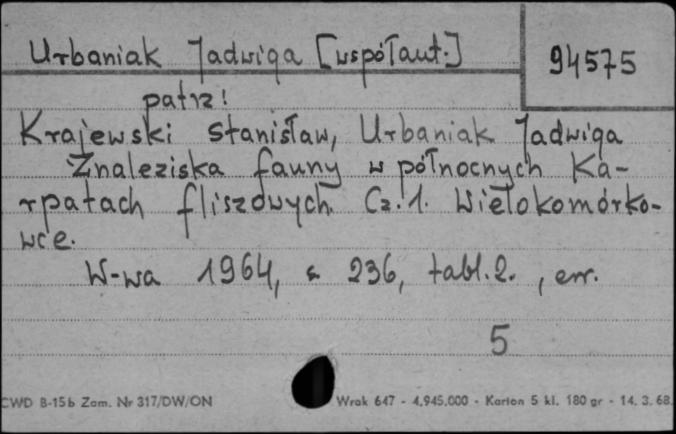 Urbaniak Jadwiga [współaut.]
94575
patrz!
Krajewski Stanisław, Urbaniak Jadwiga
Znaleziska fauny w północnych Ka-
rpatach fliszowych. Cz. 1. Wielokomórko-
wce.
W-wa 1964, s. 236, tabl. 2. , err.
5
CWD B-15b Zam. Nr 317/DW/ON
Wrak 647 - 4.945.000 - Karton 5 kl. 180 gr - 14. 3. 68.